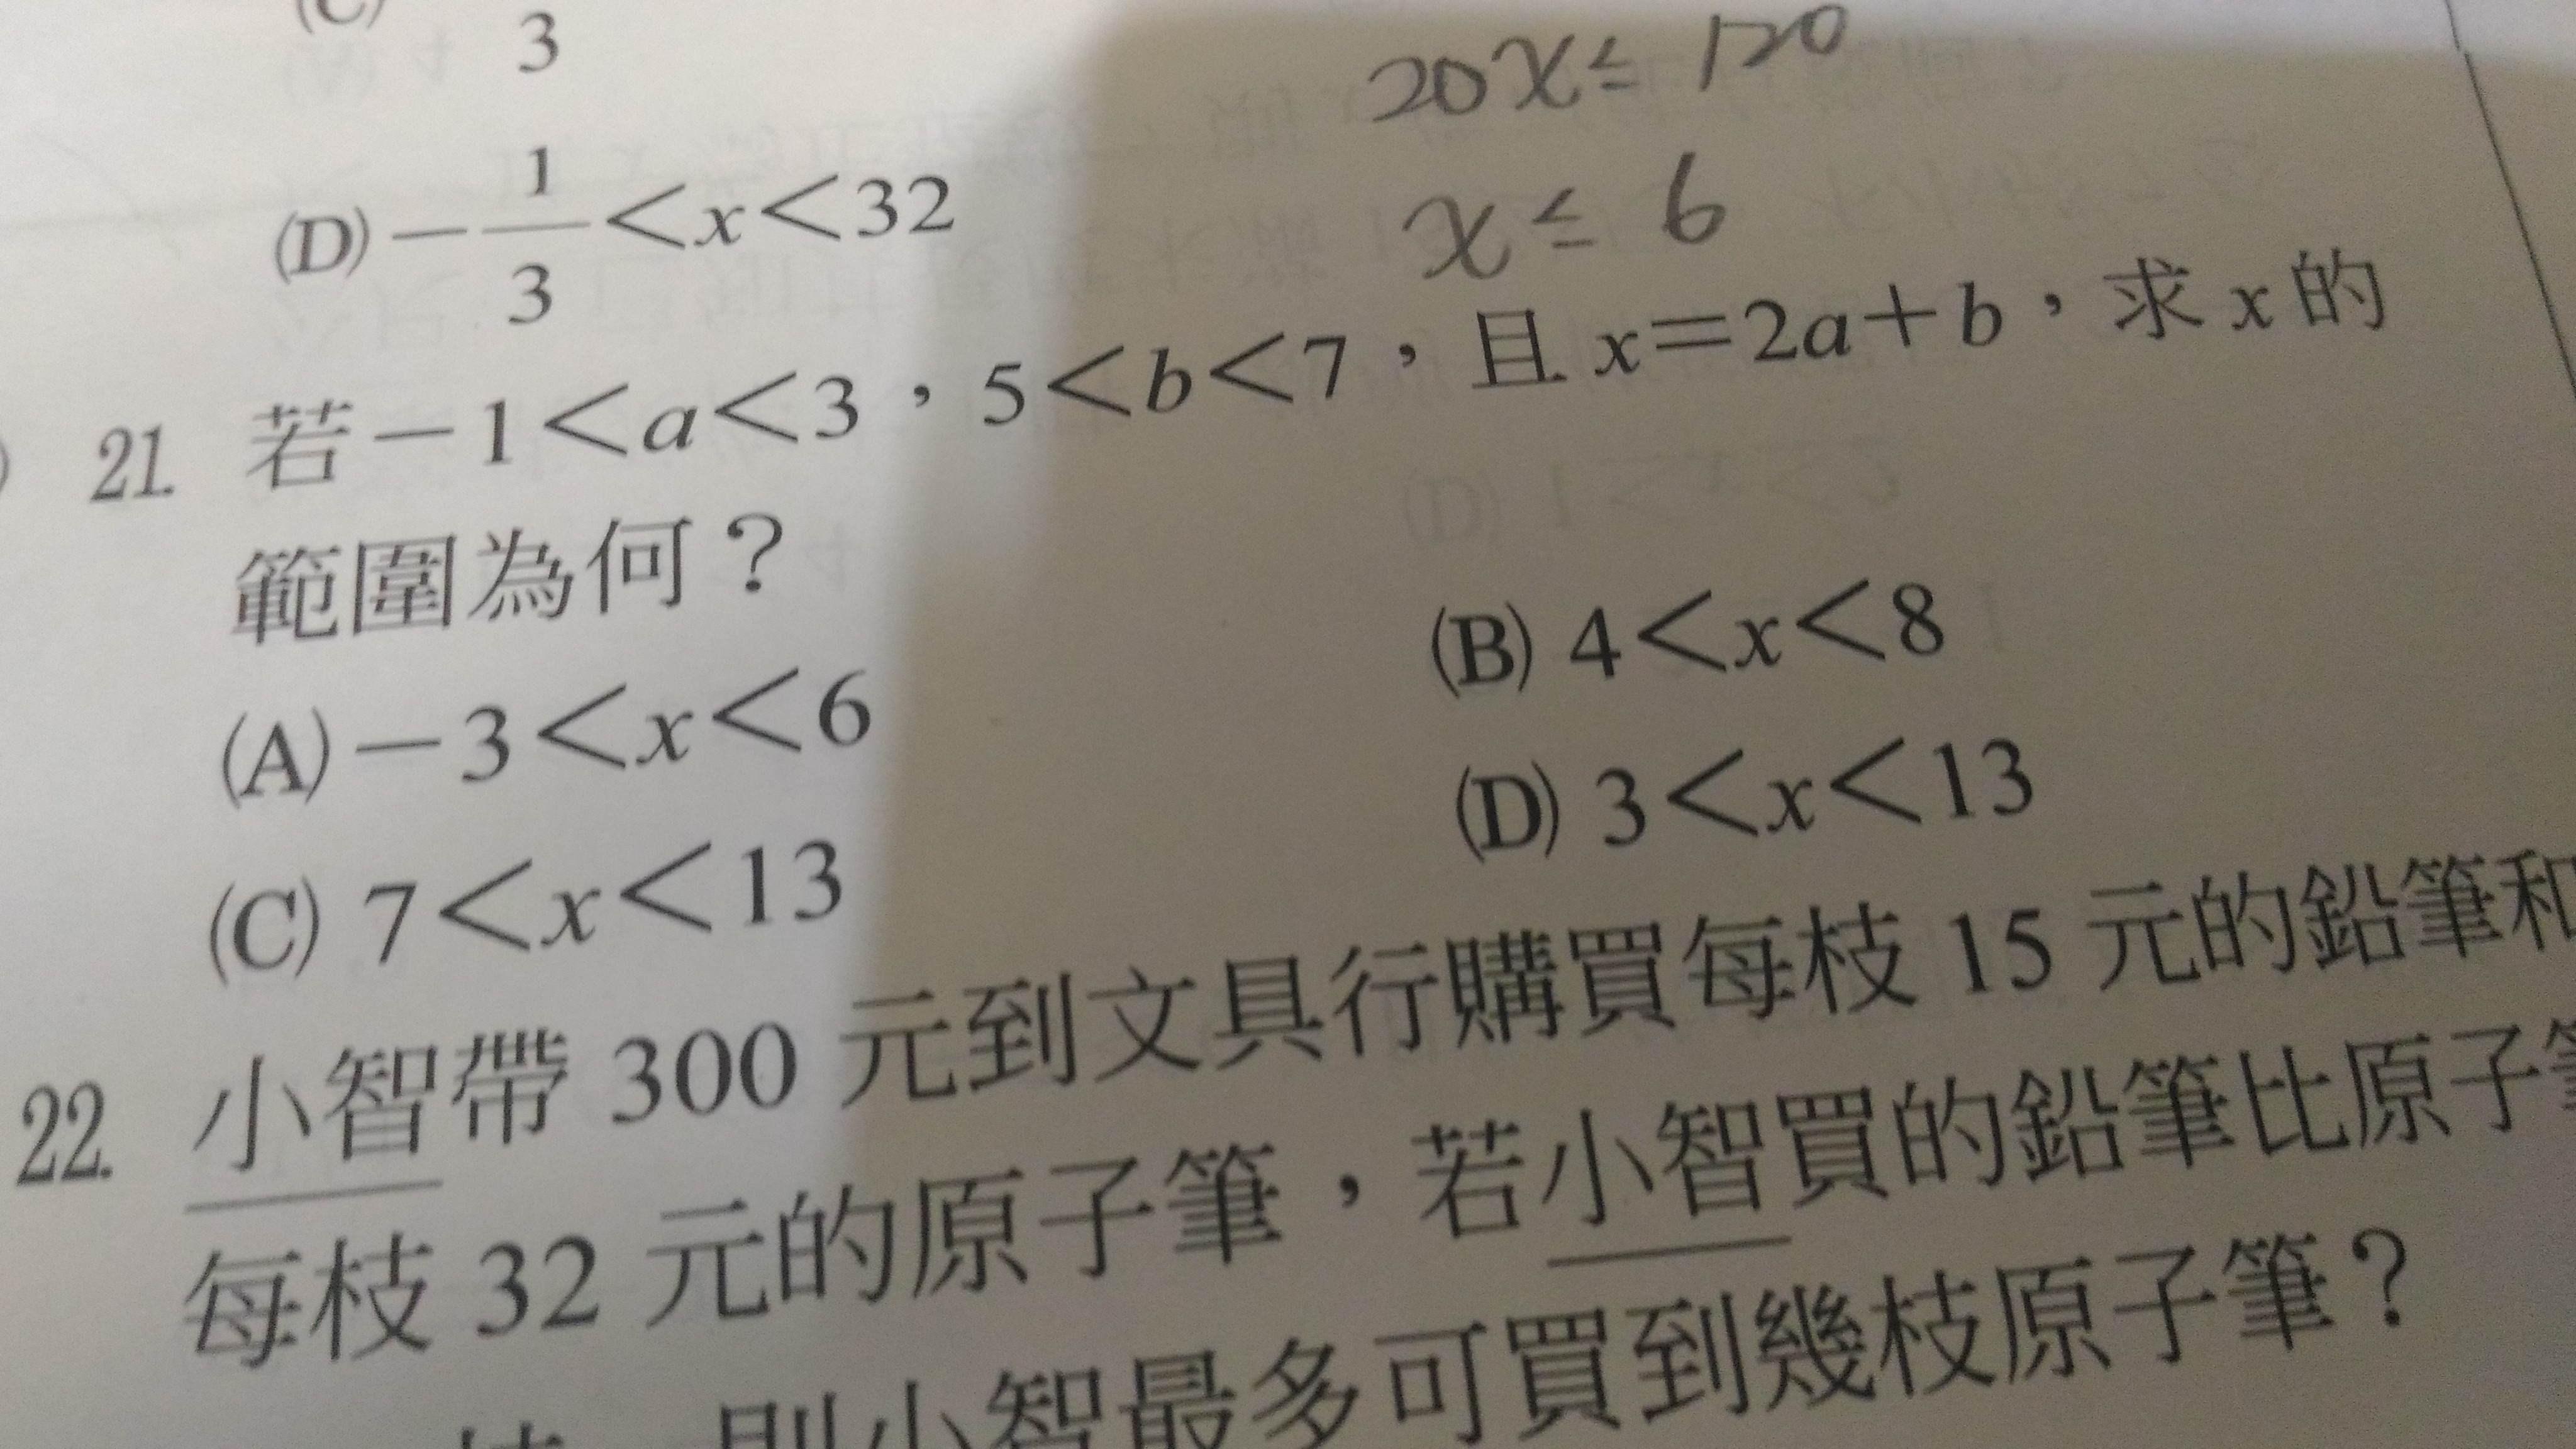 (C)
3
20x ≤ 120
(D) −1/3<x<32
x ≤ 6
21. 若−1<a<3，5<b<7，且 x=2a+b，求 x 的
範圍為何？
(A) −3<x<6 (B) 4<x<8
(C) 7<x<13 (D) 3<x<13
22. 小智帶 300 元到文具行購買每枝 15 元的鉛筆和
每枝 32 元的原子筆，若小智買的鉛筆比原子筆
則小智最多可買到幾枝原子筆？